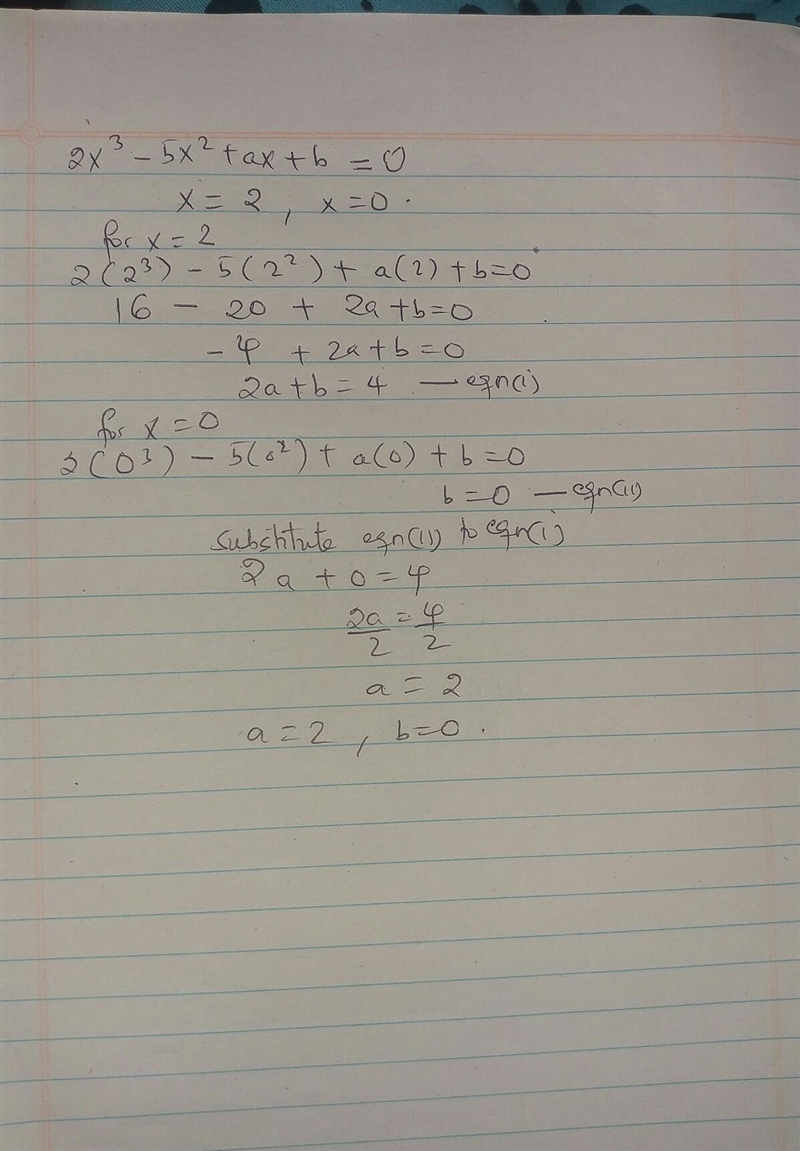 2x³ - 5x² + ax + b = 0
x = 2 , x = 0 .
for x = 2
2(2³) - 5(2²) + a(2) + b = 0
16 - 20 + 2a + b = 0
- 4 + 2a + b = 0
2a + b = 4 — eqn(i)
for x = 0
2(0³) - 5(0²) + a(0) + b = 0
b = 0 — eqn(ii)
substitute eqn(ii) to eqn(i)
2a + 0 = 4
2a/2 = 4/2
a = 2
a = 2 , b = 0 .